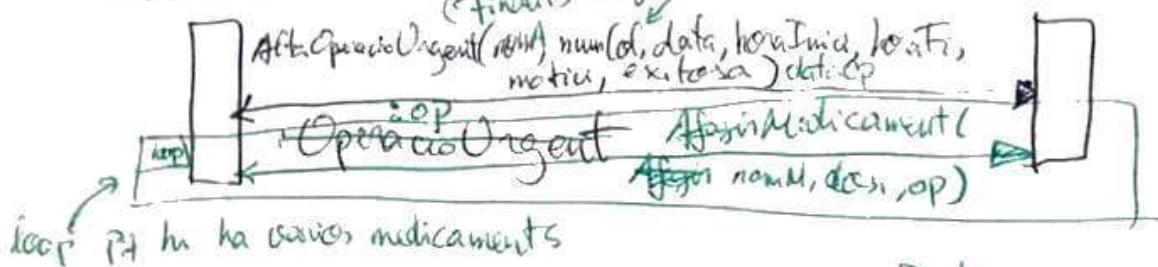 (finals
AltaOperacioUrgent(nomM, numCol, data, horaInici, horaFi,
motiu, exitosa) dataOp
:OP
:OperacioUrgent AfegirMedicament(
loop Afegir nomM, dosi, op)
loop Pq hi ha varios medicaments